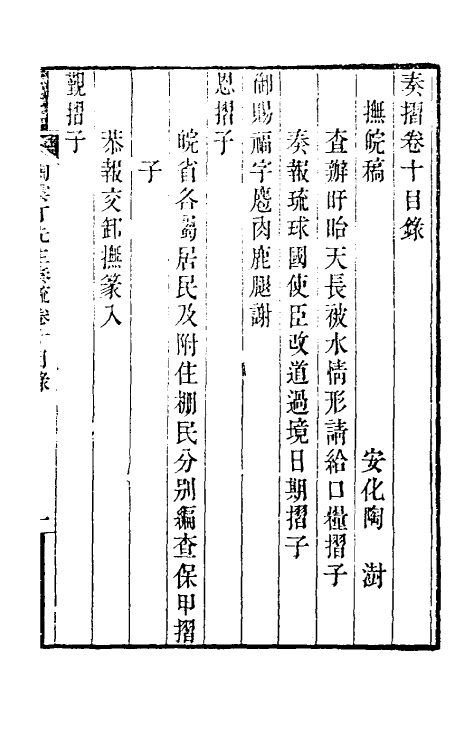 奏摺卷十目錄
撫皖稿　安化陶　澍
查辦盱眙天長被水情形請給口糧摺子
奏報琉球國使臣改道過境日期摺子
御賜福字麅肉鹿腿謝
恩摺子
皖省各屬居民及附住棚民分別編查保甲摺
子
恭報交卸撫篆入
覲摺子
陶雲汀先生奏疏卷十目錄　一